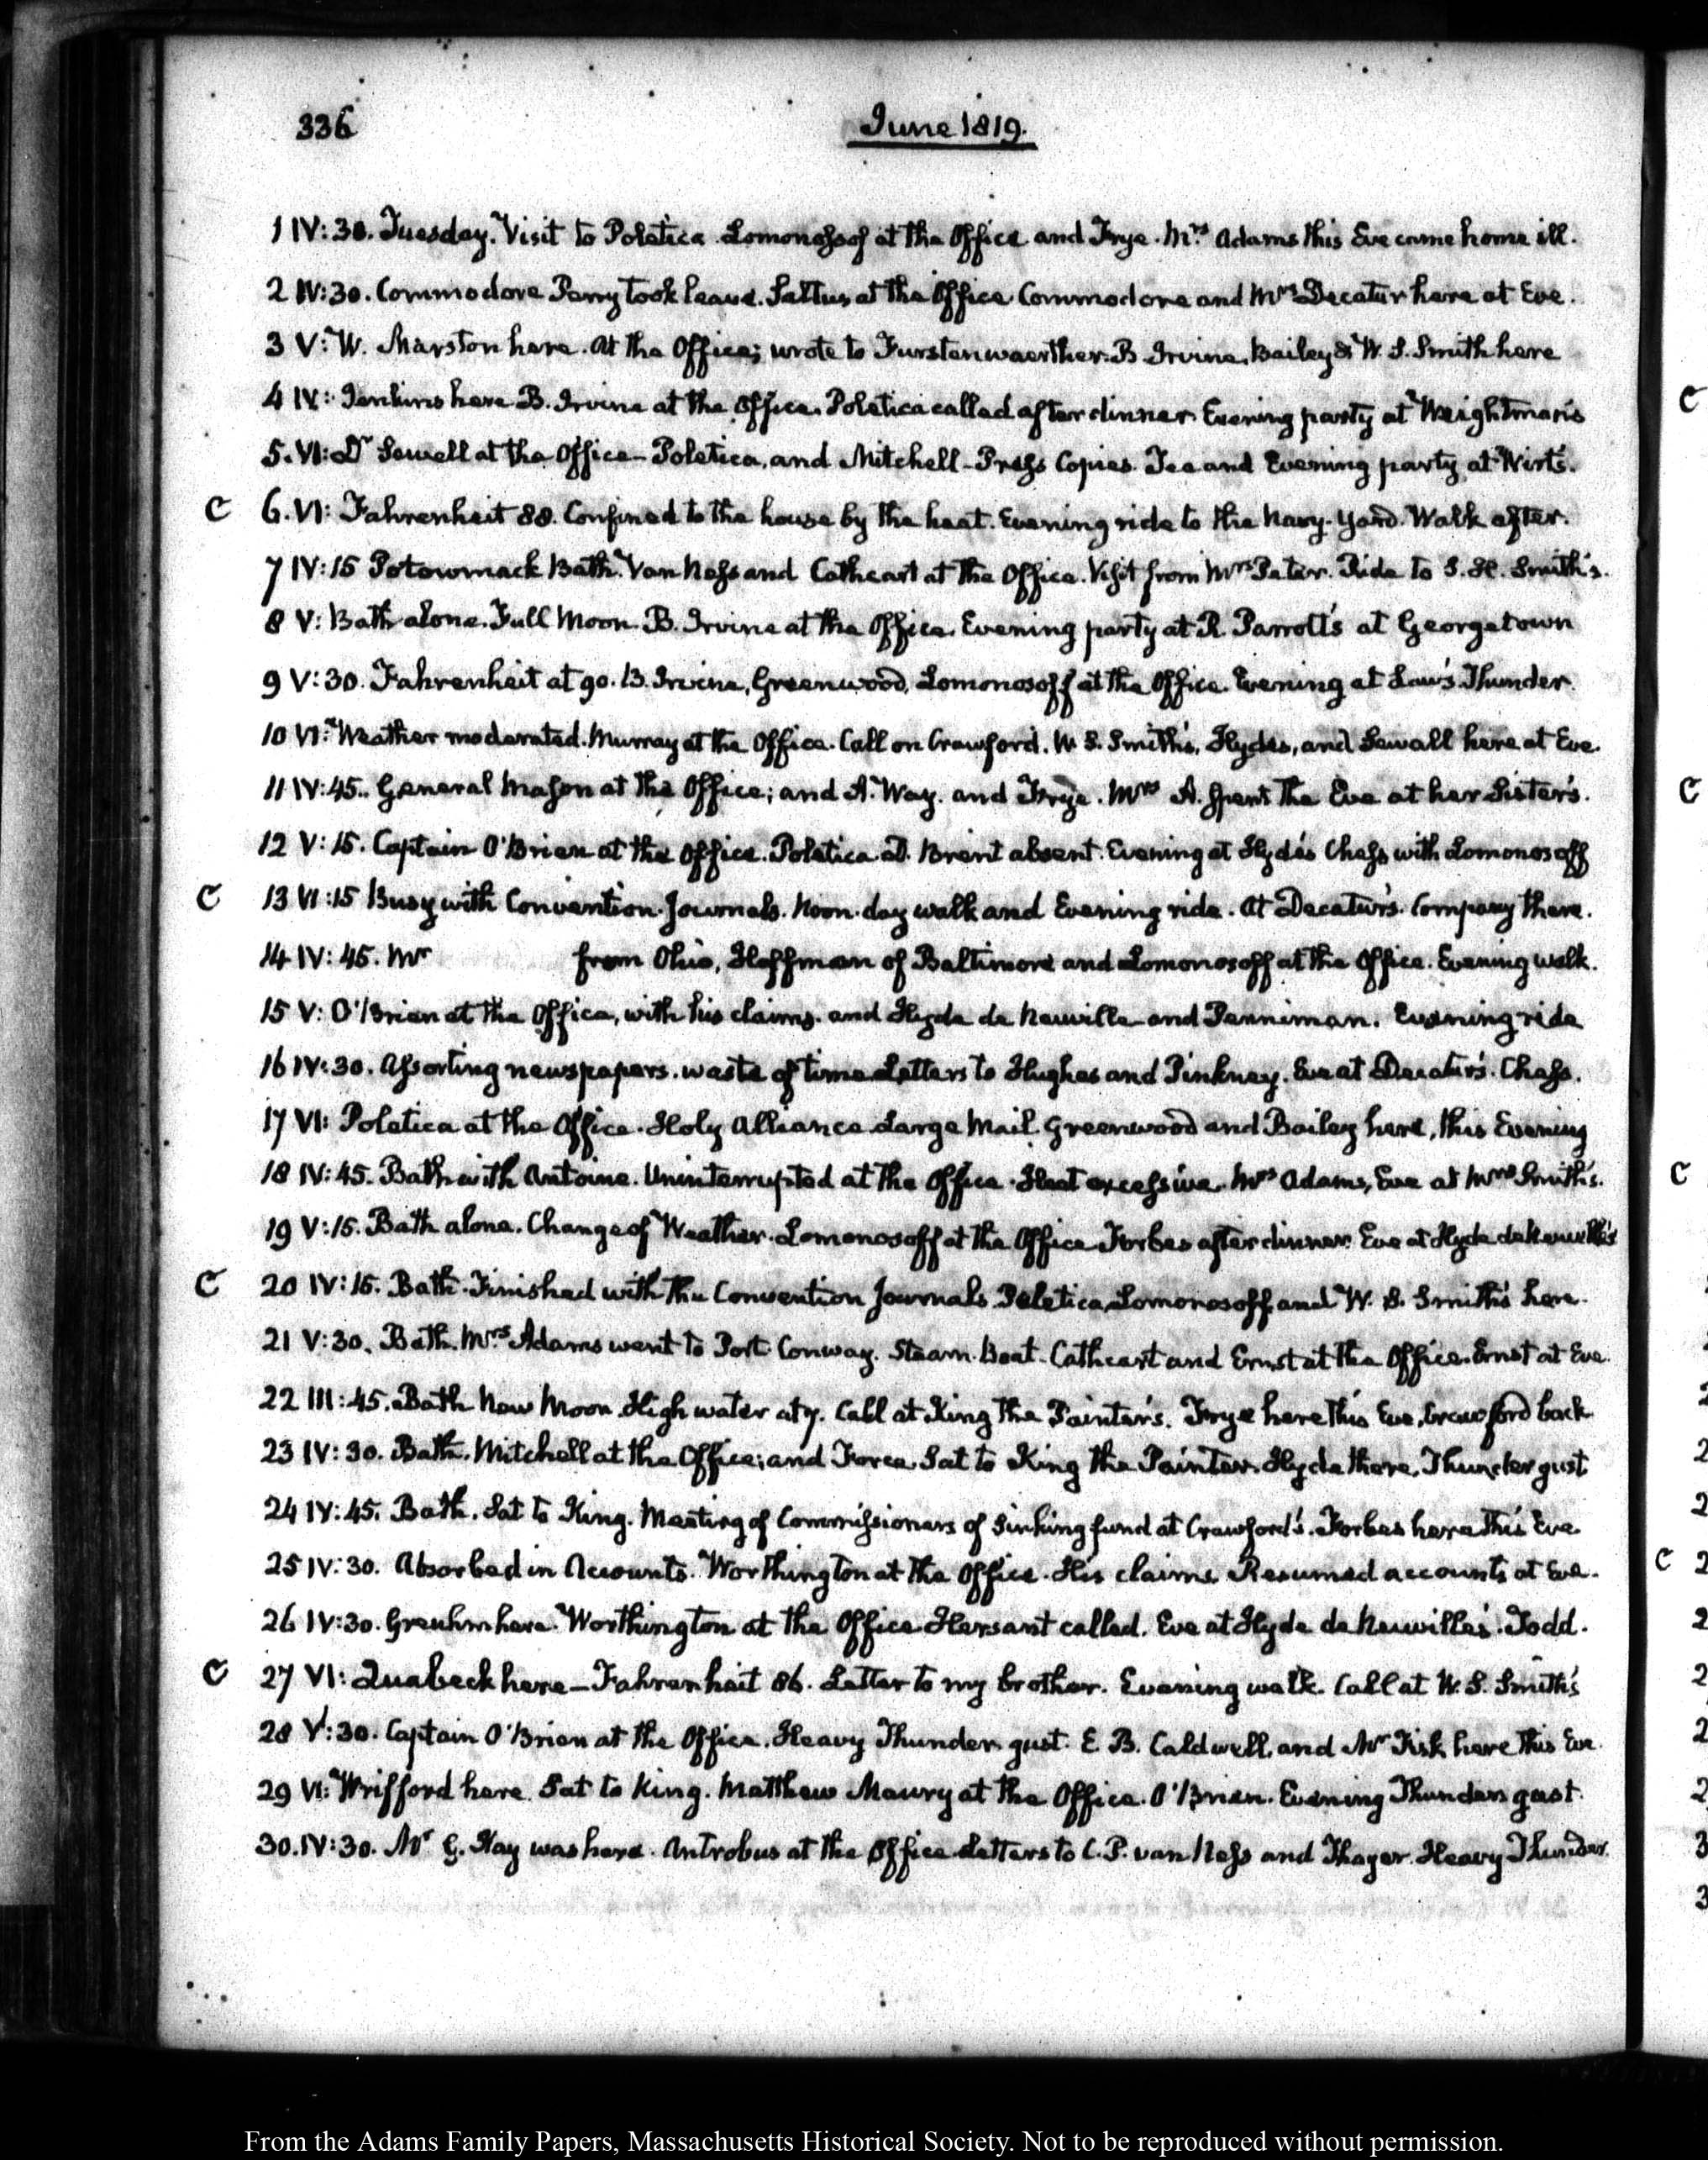 336
June 1819.
1 IV:30. Tuesday. Visit to Poletica. Lomonossof at the Office and Frye. Mrs Adams this Eve came home ill.
2 IV:30. Commodore Perry took leave. Saltus at the Office Commodore and Mrs Decatur here at Eve.
3 V: W. Marston here. At the Office; wrote to Furstenwaerther. B. Irvine, Bailey & W. S. Smith here
4 IV: Jenkins here B. Irvine at the Office. Poletica called after dinner. Evening party at Weightman's
5. VI: Dr Sewall at the Office—Poletica, and Mitchell—Press Copies. Tea and Evening party at Wirt's.
C 6. VI: Fahrenheit 88. Confined to the house by the heat. Evening ride to the Navy-Yard. Walk after.
7 IV:15 Potowmack Bath. Van Ness and Cathcart at the Office. Visit from Mrs Peter. Ride to S. H. Smith's.
8 V: Bath alone. Full Moon. B. Irvine at the Office. Evening party at R. Parrott's at Georgetown
9 V:30. Fahrenheit at 90. B. Irvine, Greenwood, Lomonosoff at the Office. Evening at Law's Thunder.
10 VI: Weather moderated. Murray at the Office. Call on Crawford. W. S. Smith's, Hydes, and Sewall here at Eve.
11 IV:45. General Mason at the Office; and A. Way. and Frye. Mrs A. spent the Eve at her Sister's.
12 V:15. Captain O'Brien at the Office. Poletica. D. Brent absent. Evening at Hyde's Chess with Lomonosoff
C 13 VI:15 Busy with Convention Journals. Noon-day walk and Evening ride. At Decatur's. Company there.
14 IV:45. Mr from Ohio, Hoffman of Baltimore and Lomonosoff at the Office. Evening walk.
15 V: O'Brien at the Office, with his claims. and Hyde de Neuville and Penniman. Evening ride
16 IV:30. Assorting newspapers. waste of time Letters to Hughes and Pinkney. Eve at Decatur's. Chess.
17 VI: Poletica at the Office. Holy Alliance Large Mail. Greenwood and Bailey here, this Evening
18 IV:45. Bath with Antoine. Uninterrupted at the Office. Heat excessive. Mrs Adams, Eve at Mrs Smith's.
19 V:15. Bath alone. Change of Weather. Lomonosoff at the Office Forbes after dinner. Eve at Hyde de Neuville's
C 20 IV:15. Bath. Finished with the Convention Journals. Poletica, Lomonosoff, and W. S. Smith's here.
21 V:30. Bath. Mrs Adams went to Port Conway. Steam-Boat. Cathcart and Ernst at the Office. Ernst at Eve.
22 III:45. Bath New Moon. High water at 7. Call at King the Painter's. Frye here this Eve, Crawford back
23 IV:30. Bath. Mitchell at the Office; and Force. Sat to King the Painter. Hyde there. Thunder gust
24 IV:45. Bath. Sat to King. Meeting of Commissioners of Sinking fund at Crawford's. Forbes here this Eve.
C 25 IV:30. Absorbed in Accounts. Worthington at the Office. His claims. Resumed accounts at Eve.
26 IV:30. Greuhm here. Worthington at the Office Hersant called. Eve at Hyde de Neuville's. Todd.
C 27 VI: Quabeck here—Fahrenheit 86. Letter to my brother. Evening walk. Call at W. S. Smith's
28 V:30. Captain O'Brien at the Office. Heavy Thunder gust. E. B. Caldwell, and Mr Fisk here this Eve.
29 VI: Wrifford here. Sat to King. Matthew Maury at the Office. O'Brien. Evening Thunder gust.
30. IV:30. Mr G. Hay was here. Antrobus at the Office Letters to C. P. van Ness and Thayer. Heavy Thunder.
From the Adams Family Papers, Massachusetts Historical Society. Not to be reproduced without permission.